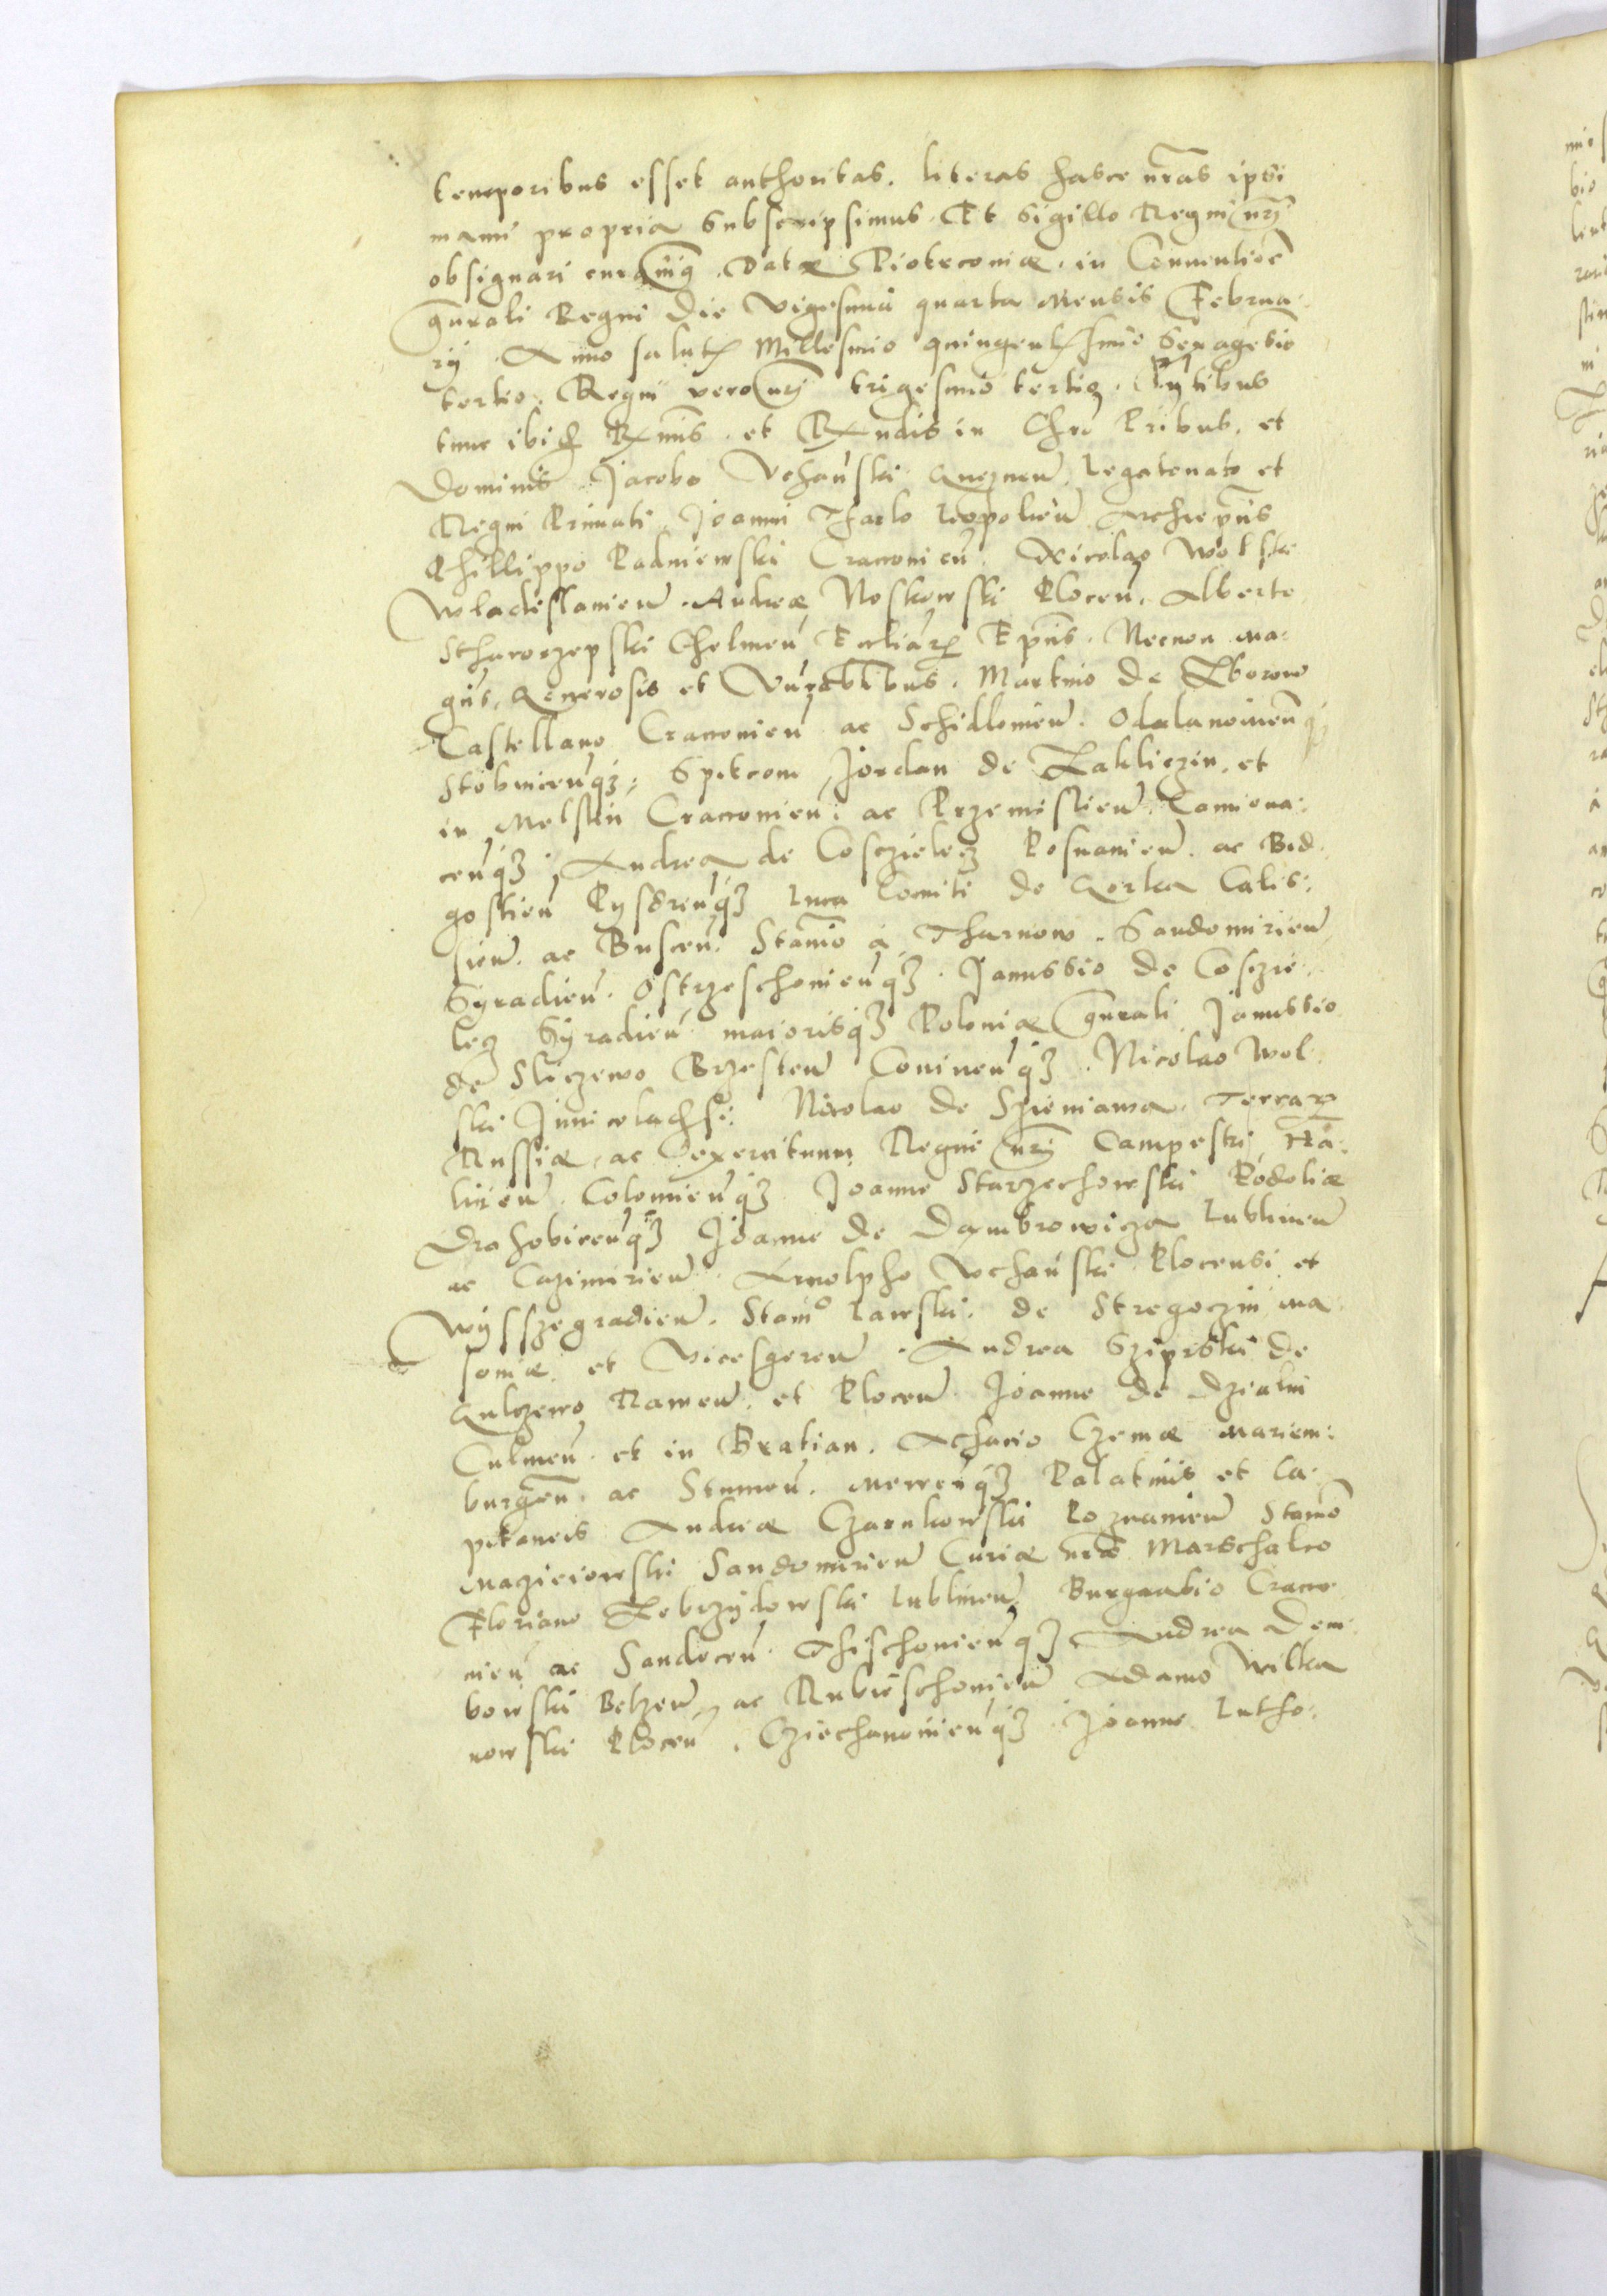 temporibus esset authoritas. literas hasce nr̃as ipsi
manu propria subscripsimus. Et sigillo Regni nr̃i
obsignari curauimus. Datæ Piotrcouiæ. in Conuentioe
gñrali Regni die vigesima quarta mensis Februa:
rij. Anno salutis Millesimo quingentesimo sexagesio
tertio. Regni vero nr̃i trigesimo tertio. Pñtibus
tunc ibidem Rx̃mis. et Rx̃ndis in Chro Pribus. et
Dominis Jacobo Vchański Gneznen̄. Legatonato et
Regni Primati. Joanni Tharlo Leopolien̄ Archiep̃is
Phillippo Padniewski Cracouien̄. Nicolao Wolski
Wladislauien̄. Andrea Noskowski Plocen̄. Alberto
Sthrarozepski Chelmen̄ Ecl̃iarum Ep̃is. Necnon ma:
gcis, Generosis et Vñrabilibus. Martino de Zborow
Castellano Cracouien̄ ac Schidlouien̄. Odalanouien̄q3
Stobnicen̄q3; Spitcone Jordan de Zakliczin. et
in Melstin Cracouien̄: ac Przemislien̄. Camiona:
cen̄q3; Andrea de Cosczielecz Posnanien̄. ac Bid:
gostien̄ Pysdren̄q3 Luca Comiti de Gorka Calis:
sien̄. ac Buscen̄. Stanĩo à Tharnow. Sandomirien̄
Syradien̄. Ostrzeschouien̄q3. Janussio de Cosczie:
lecz Syradien̄. maiorisq3 Poloniæ gñrali Janussio
de Sluzewo Brzesten̄ Coninen̄q3. Nicolao Wol:
ski Junivladisl: Nicolao de Szieniawa. Terrarum
Russiæ, ac exercituum Regni nr̃i Campestri Ha:
licien̄. Colomien̄q3 Joanne Starzechowski Podoliæ
Drohobicen̄q3 Joanne de Dambrowicza Lublinen̄
ac Cazimirien̄. Arnolpho Vchański. Plocensi et
Wysszegradien̄. Stanio Lawski. de Stregoczin ma:
souiæ. et Vicesgeren̄. Andrea Szierski de
Gulczewo Rawen̄. et Plocen̄. Joanne de Dzialin
Culmen̄. et in Bratian. Achacio Czemæ mariem:
burgen̄. ac Stumen̄. Meweñq3 Palatinis et Ca:
pitaneis Andrea Czarnkowski Poznanien̄ Stanio
Macziejowski Sandomirien̄ Curiæ nr̃æ Marschalco
Floriano Zebrzydowski Lublinen̄. Burgrabio Craco:
uien̄ ac Sandecen̄. Thischouien̄q3 Andrea Dem:
bowski Belzen̄, ac Rubieschouien̄ Adamo Wilka
nowski Plocen̄. Cziechanouien̄q3. Joanne Lutho: